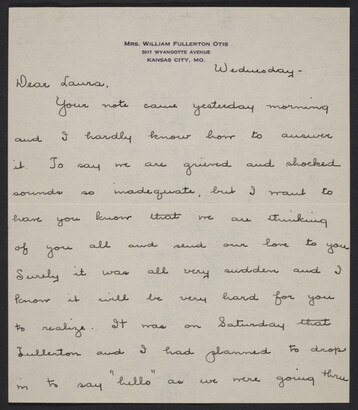 MRS. WILLIAM FULLERTON OTIS
5617 WYANDOTTE AVENUE
KANSAS CITY, MO.
Wednesday -
Dear Laura,
Your note came yesterday morning
and I hardly know how to answer
it. To say we are grieved and shocked
sounds so inadequate, but I want to
have you know that we are thinking
of you all and send our love to you
Surely it was all very sudden and I
know it will be very hard for you
to realize. It was on Saturday that
Fullerton and I had planned to drop
in to say "hello" as we were going thru